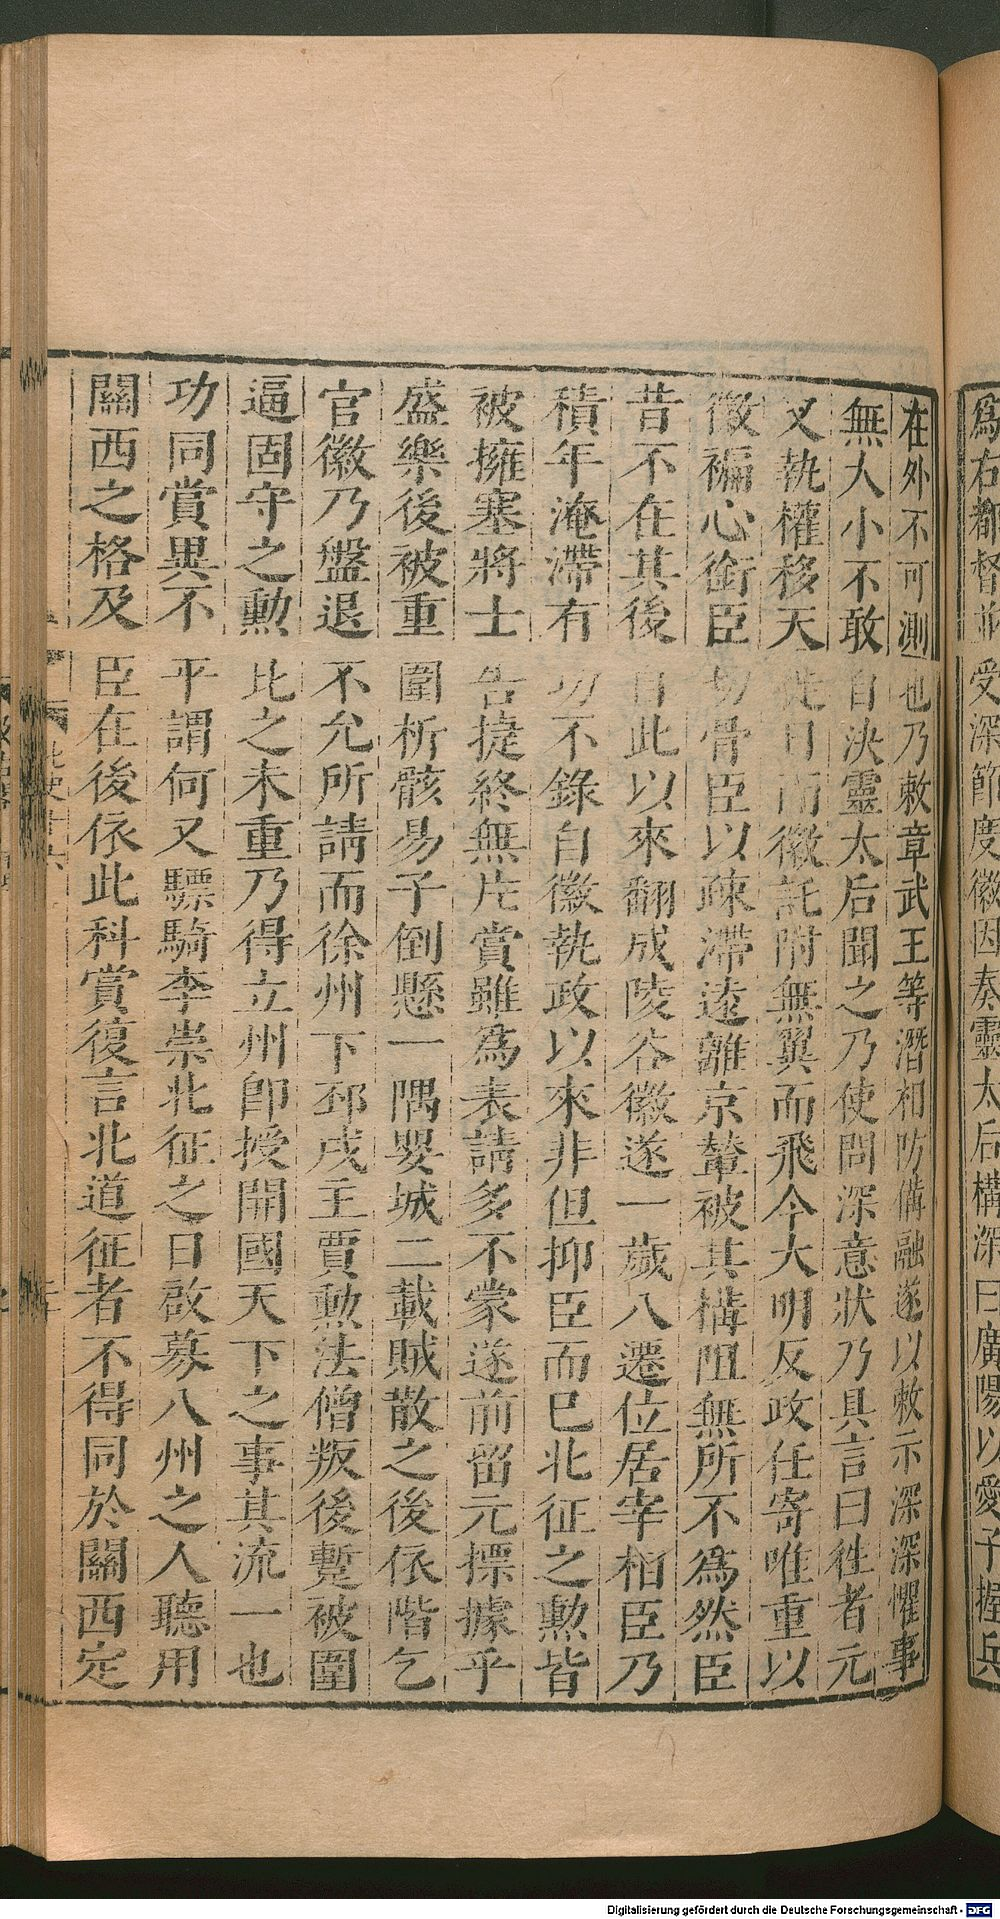 爲右都督並受深節度徽因奏靈太后構深曰廣陽以愛子握兵
在外不可測也乃敕章武王等潛相防備融遂以敕示深深懼事
無大小不敢自決靈太后聞之乃使問深意狀乃具言曰徃者元
叉執權移天徙日而徽託附無翼而飛今大明反政任寄唯重以
徽褊心銜臣切骨臣以疎滯遠離京輦被其構阻無所不爲然臣
昔不在其後自此以來翻成陵谷徽遂一歲八遷位居宰相臣乃
積年淹滯有功不錄自徽執政以來非但抑臣而已北征之勲皆
被擁塞將士告捷終無片賞雖爲表請多不蒙遂前留元摽據乎
盛樂後被重圍析骸易子倒懸一隅嬰城二載賊散之後依階乞
官徽乃盤退不允所請而徐州下邳戍主賈勲法僧叛後蹔被圍
逼固守之勲比之未重乃得立州即授開國天下之事其流一也
功同賞異不平謂何又驃騎李崇北征之日啟募八州之人聽用
關西之格及臣在後依此科賞復言北道征者不得同於關西定
Digitalisierung gefördert durch die Deutsche Forschungsgemeinschaft - DFG